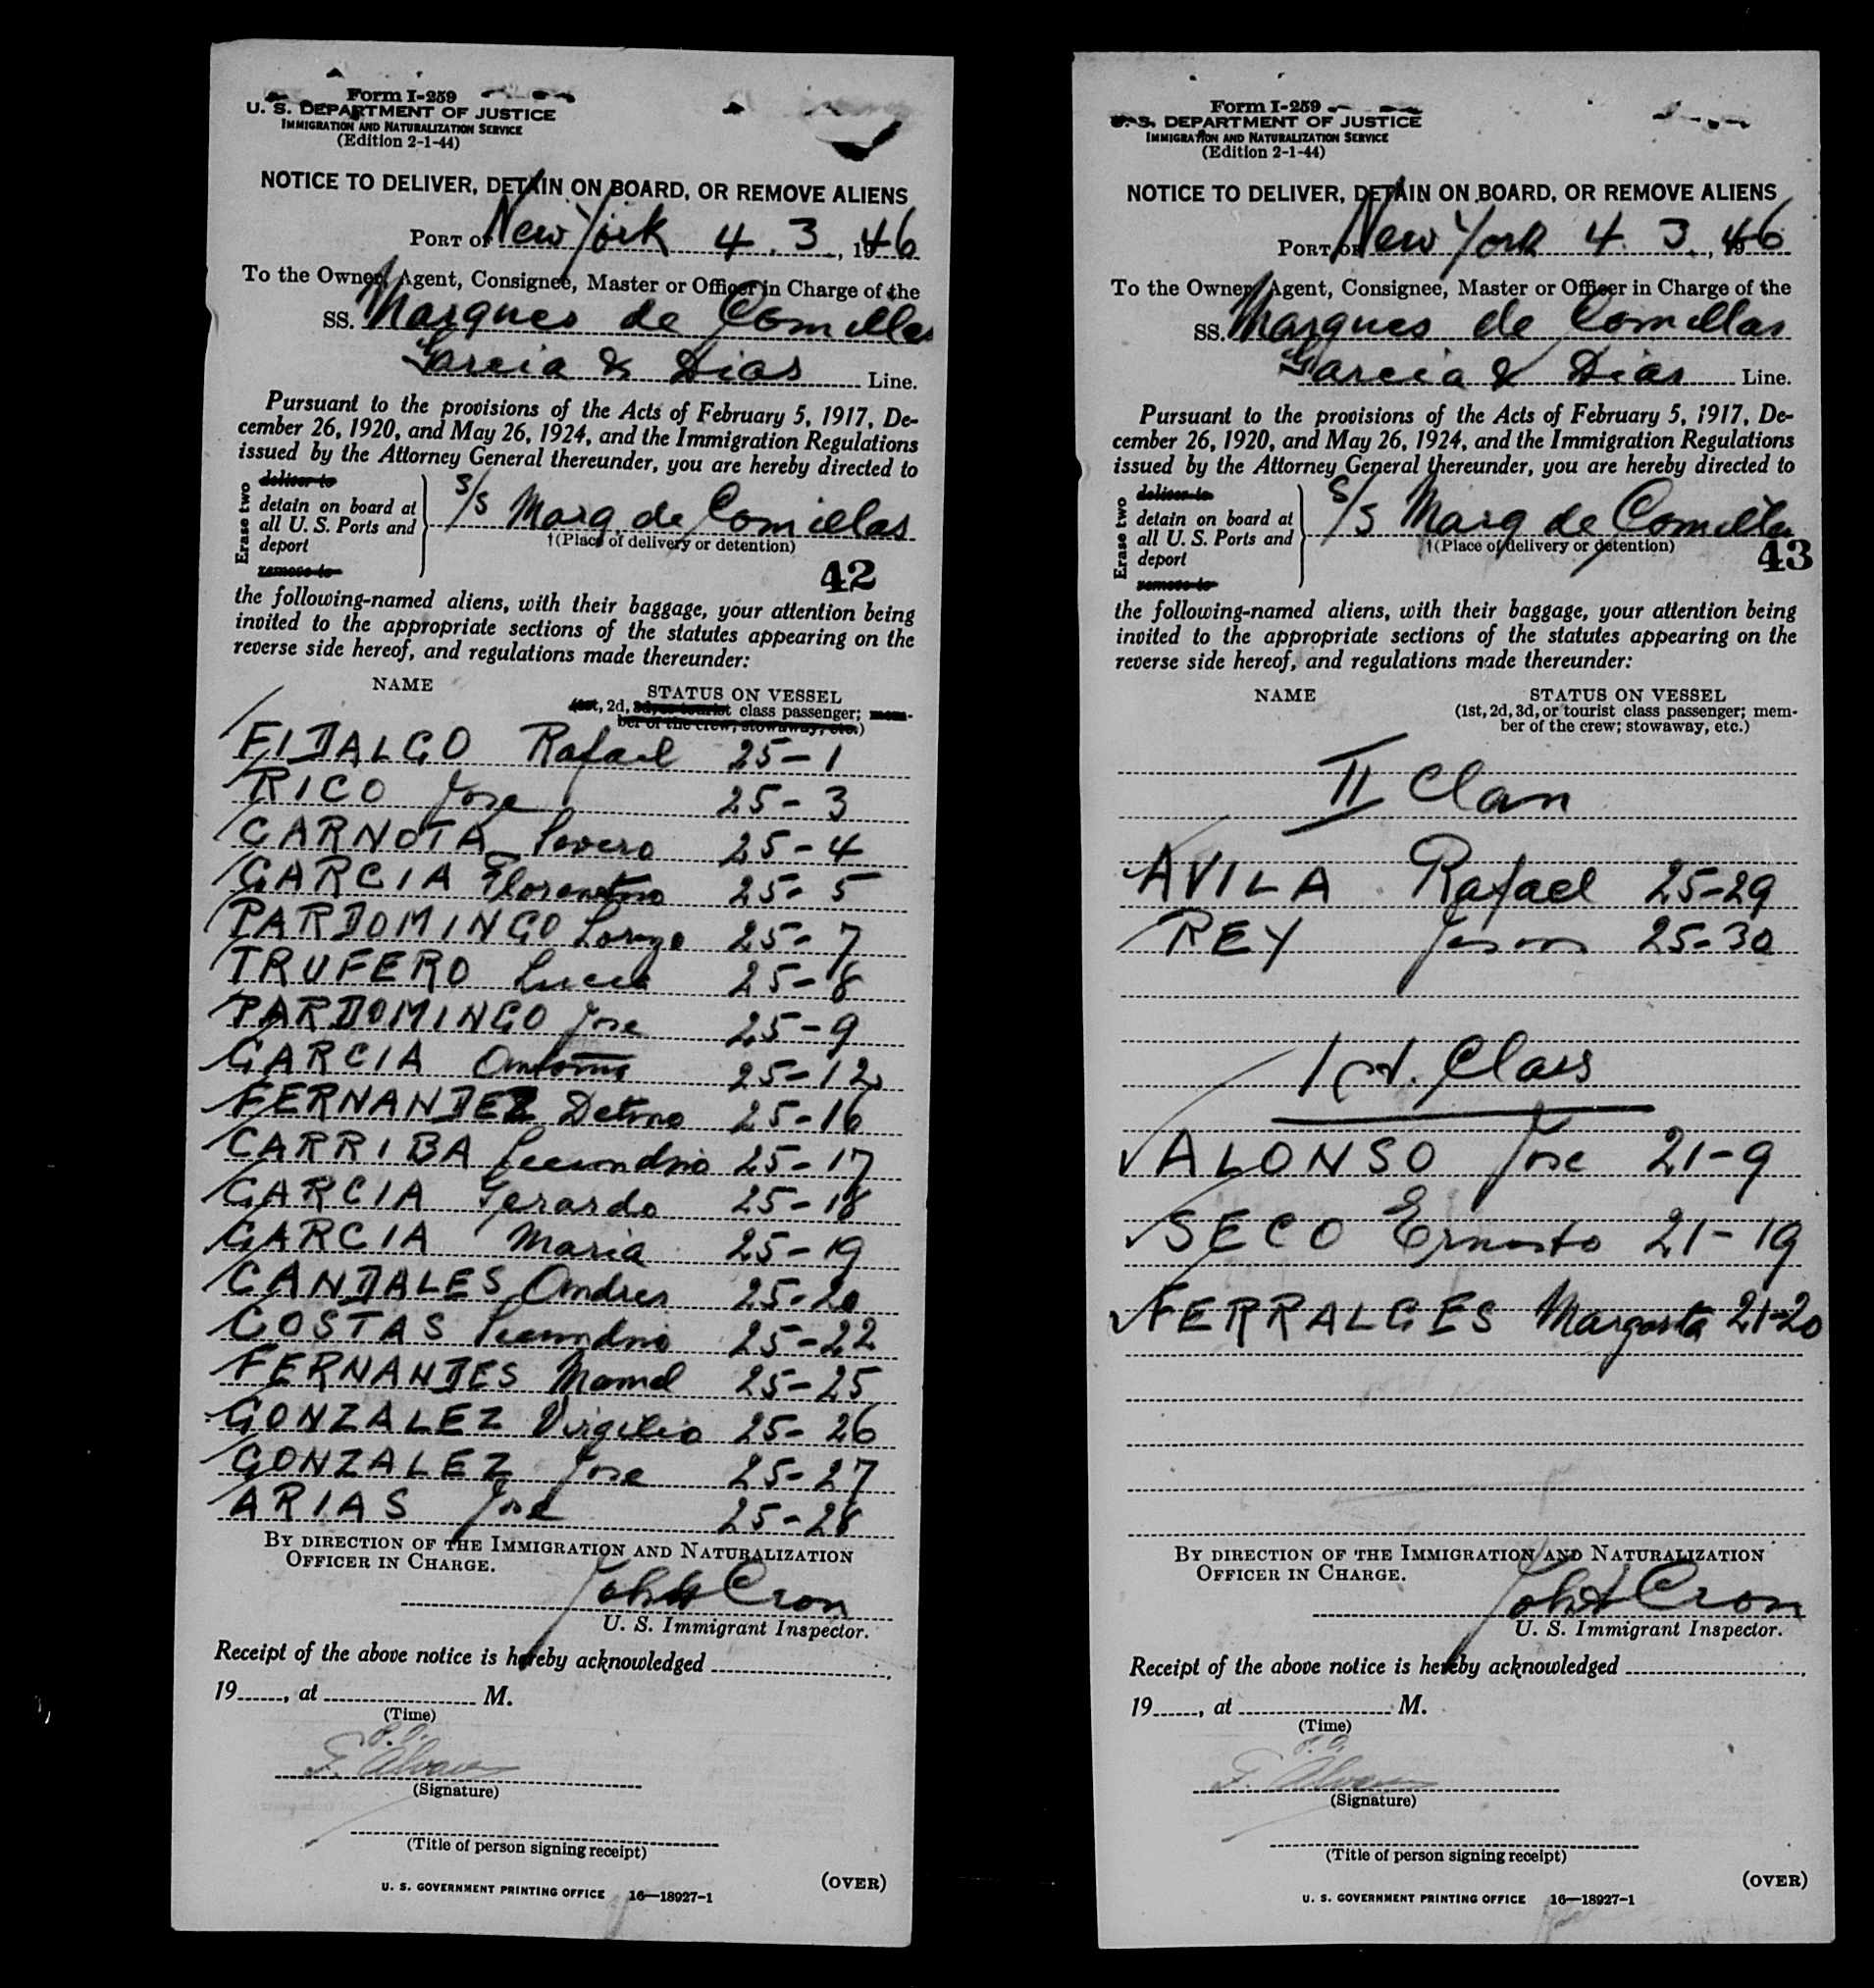 Form I-259
U. S. DEPARTMENT OF JUSTICE
IMMIGRATION AND NATURALIZATION SERVICE
(Edition 2-1-44)
NOTICE TO DELIVER, DETAIN ON BOARD, OR REMOVE ALIENS
PORT OF New York 4. 3., 1946
To the Owner, Agent, Consignee, Master or Officer in Charge of the
SS. Marques de Comillas
Garcia & Dias Line.
Pursuant to the provisions of the Acts of February 5, 1917, De-
cember 26, 1920, and May 26, 1924, and the Immigration Regulations
issued by the Attorney General thereunder, you are hereby directed to
Erase two
deliver to
detain on board at
all U. S. Ports and
deport
remove to
S/S Marq de Comillas
†(Place of delivery or detention)
42
the following-named aliens, with their baggage, your attention being
invited to the appropriate sections of the statutes appearing on the
reverse side hereof, and regulations made thereunder:
NAME
STATUS ON VESSEL
(1st, 2d, 3d, or tourist class passenger; mem-
ber of the crew; stowaway, etc.)
FIDALGO Rafael 25-1
RICO Jose 25-3
CARNOTA Severo 25-4
GARCIA Florentino 25-5
PARDOMINGO Lorenzo 25-7
TRUFERO 25-8
PARDOMINGO Jose 25-9
GARCIA Antonio 25-12
FERNANDEZ 25-16
CARRIBA Secundino 25-17
GARCIA Gerardo 25-18
GARCIA Maria 25-19
CANDALES Andres 25-20
COSTAS Secundino 25-22
FERNANDES Manuel 25-25
GONZALEZ Virgilio 25-26
GONZALEZ Jose 25-27
ARIAS Jose 25-28
BY DIRECTION OF THE IMMIGRATION AND NATURALIZATION
OFFICER IN CHARGE.
John Cron
U. S. Immigrant Inspector.
Receipt of the above notice is hereby acknowledged
19, at M.
(Time)
F. Alvarez
(Signature)
(Title of person signing receipt)
(OVER)
U. S. GOVERNMENT PRINTING OFFICE 16—18927-1
Form I-259
U. S. DEPARTMENT OF JUSTICE
IMMIGRATION AND NATURALIZATION SERVICE
(Edition 2-1-44)
NOTICE TO DELIVER, DETAIN ON BOARD, OR REMOVE ALIENS
PORT OF New York 4. 3., 1946
To the Owner, Agent, Consignee, Master or Officer in Charge of the
SS. Marques de Comillas
Garcia & Dias Line.
Pursuant to the provisions of the Acts of February 5, 1917, De-
cember 26, 1920, and May 26, 1924, and the Immigration Regulations
issued by the Attorney General thereunder, you are hereby directed to
Erase two
deliver to
detain on board at
all U. S. Ports and
deport
remove to
S/S Marq de Comillas
†(Place of delivery or detention)
43
the following-named aliens, with their baggage, your attention being
invited to the appropriate sections of the statutes appearing on the
reverse side hereof, and regulations made thereunder:
NAME
STATUS ON VESSEL
(1st, 2d, 3d, or tourist class passenger; mem-
ber of the crew; stowaway, etc.)
II Class
AVILA Rafael 25-29
REY 25-30
1st. Class
ALONSO Jose 21-9
SECO Ernesto 21-19
FERRALGES Margarita 21-20
BY DIRECTION OF THE IMMIGRATION AND NATURALIZATION
OFFICER IN CHARGE.
John Cron
U. S. Immigrant Inspector.
Receipt of the above notice is hereby acknowledged
19, at M.
(Time)
F. Alvarez
(Signature)
(Title of person signing receipt)
(OVER)
U. S. GOVERNMENT PRINTING OFFICE 16—18927-1